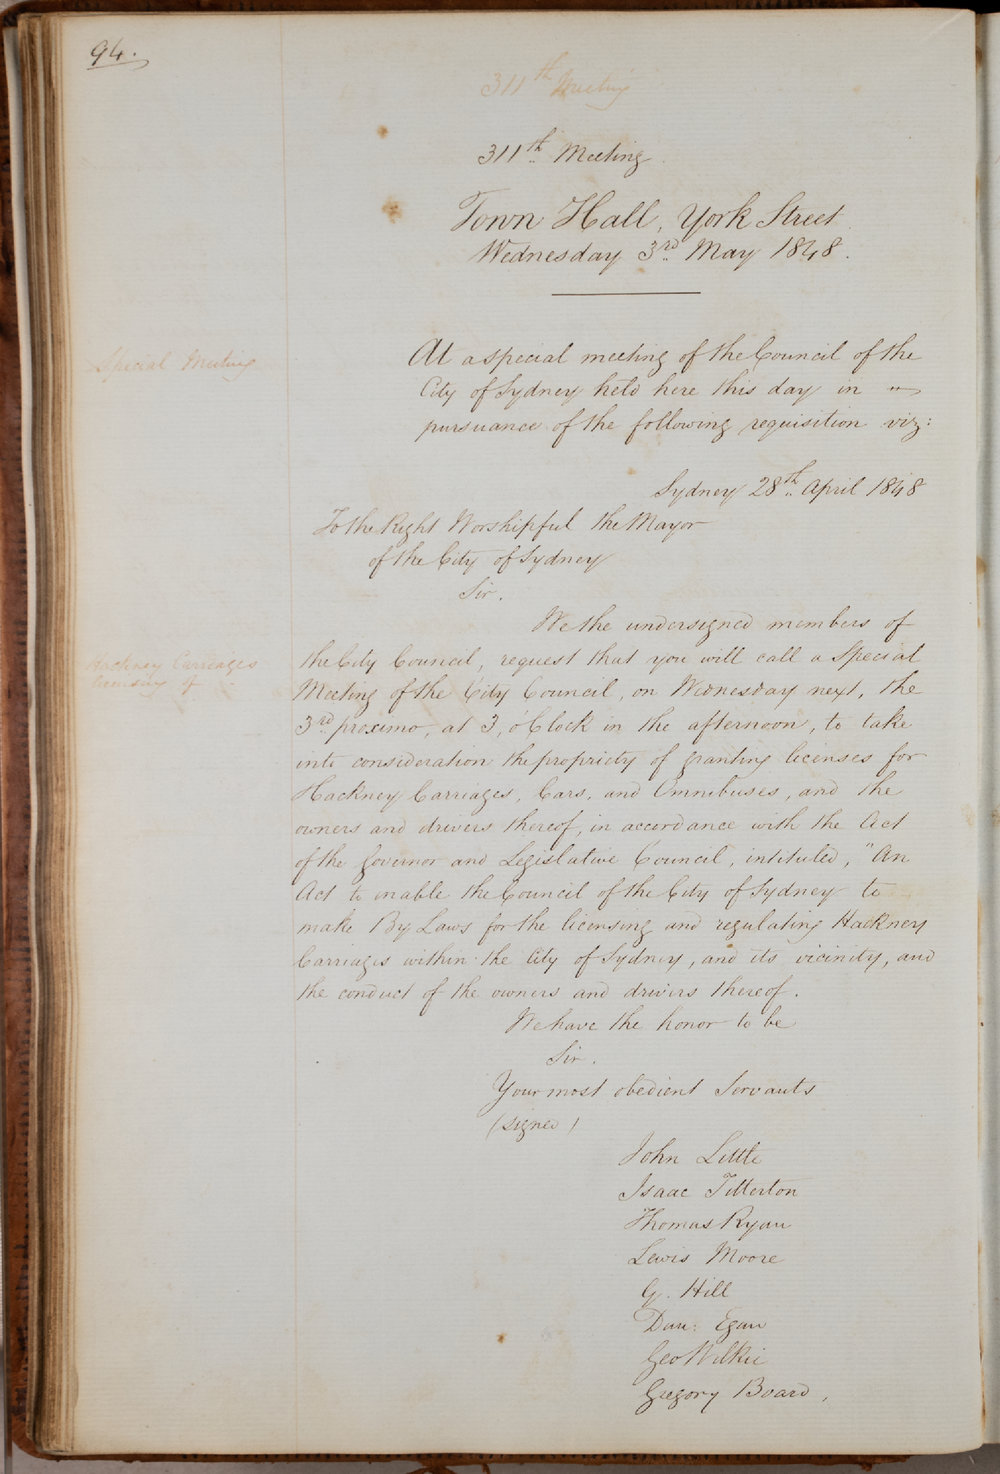 94.
311th Meeting
311th Meeting.
Town Hall, York Street.
Wednesday 3rd May 1848.
Special Meeting
At a special meeting of the Council of the
City of Sydney held here this day in
pursuance of the following requisition viz:
Sydney 28th April 1848
To the Right Worshipful the Mayor
of the City of Sydney
Sir.
We the undersigned members of
Hackney Carriages
licensing of
the City Council, request that you will call a Special
Meeting of the City Council, on Wednesday next, the
3rd proximo, at 3, o'Clock in the afternoon, to take
into consideration the propriety of granting licenses for
Hackney Carriages, Cars, and Omnibuses, and the
owners and drivers thereof, in accordance with the Act
of the Governor and Legislative Council, intituled, "An
Act to enable the Council of the City of Sydney to
make By Laws for the licensing and regulating Hackney
Carriages within the City of Sydney, and its vicinity, and
the conduct of the owners and drivers thereof.
We have the honor to be
Sir.
Your most obedient Servants
(signed)
John Little
Isaac Titterton
Thomas Ryan
Lewis Moore
G. Hill
Dan: Egan
Geo Wilkie
Gregory Board,